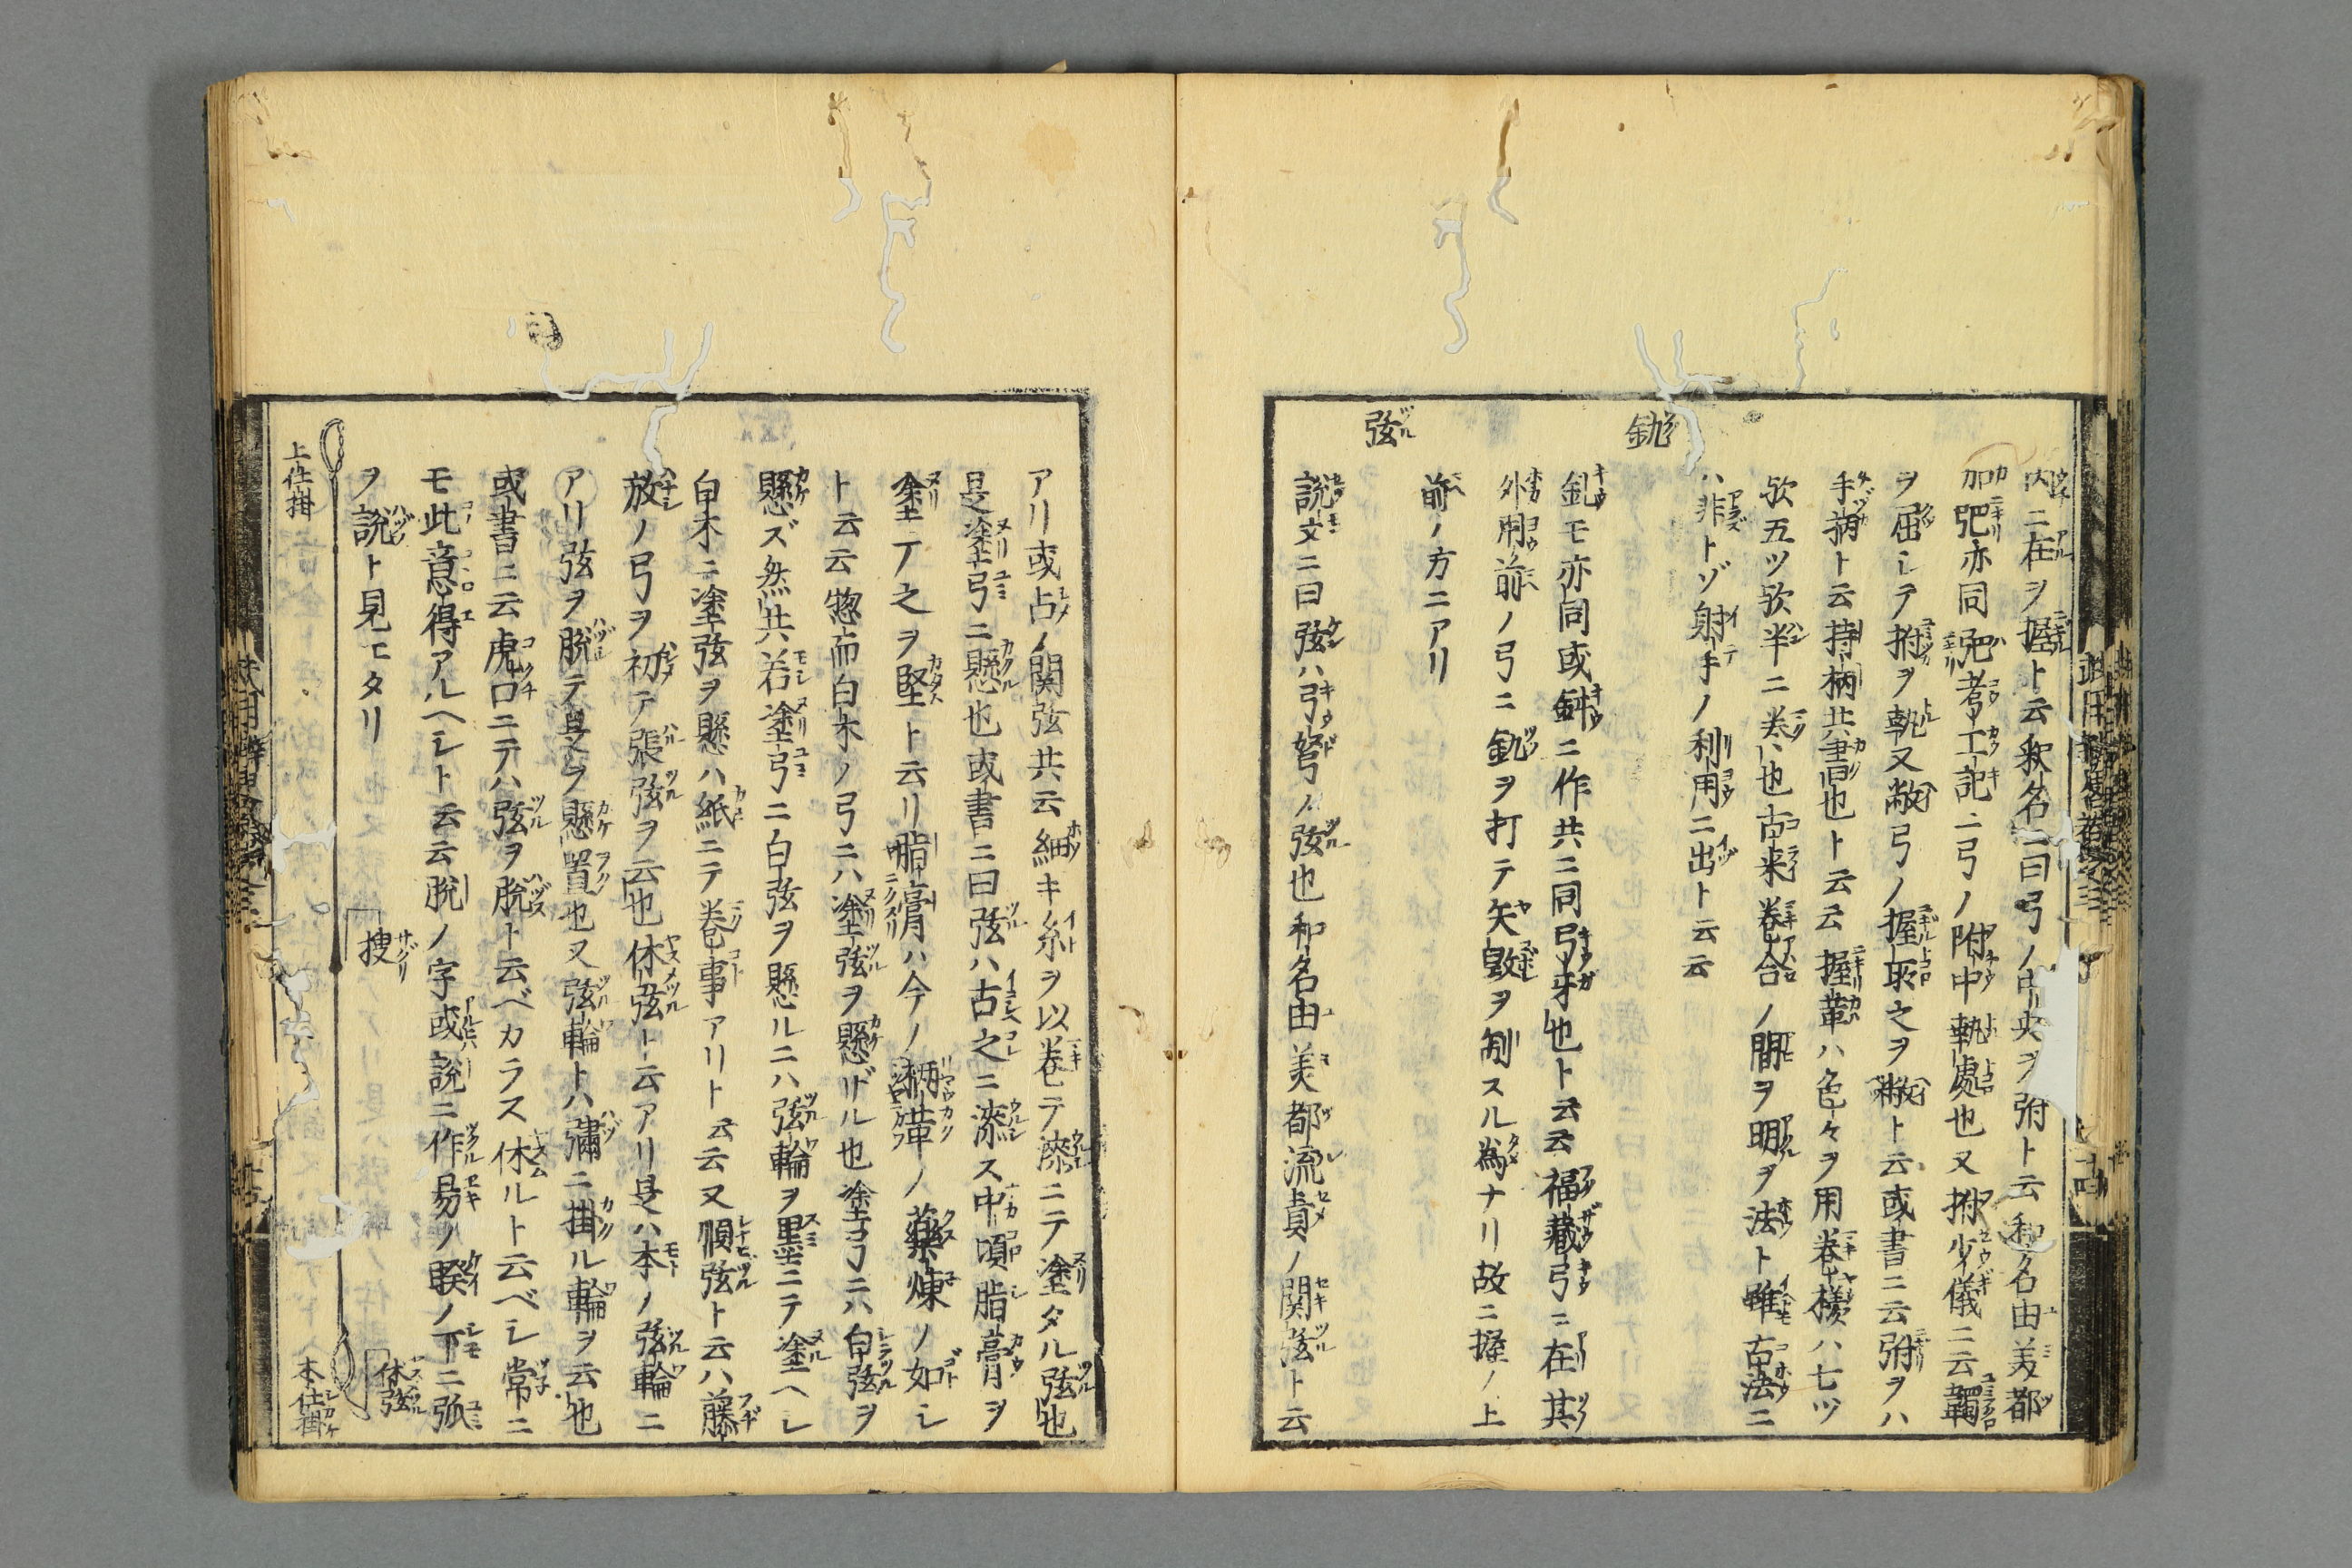 内ニ在ヲ握ト云釈名ニ曰弓ノ中央ヲ弣ト云和名由美都
加弝亦同弝考工記ニ弓ノ附中執處也又拊少儀ニ云韣
ヲ屈シテ拊ヲ執又敝弓ノ握取之ヲ敝ト云或書ニ云弣ヲハ
手柄ト云持柄共書也ト云云握革ハ色々ヲ用巻様ハ七ツ
欤五ツ欤半ニ巻ハ也古来巻合ノ間ヲ明ヲ法ト雖古法ニ
ハ非トゾ射手ノ利用ニ出ト云云
釚
釓モ亦同或釬ニ作共ニ同弓牙也ト云云福蔵弓ニ在其
外用前ノ弓ニ釚ヲ打テ矢毀ヲ制スル為ナリ故ニ握ノ上
前ノ方ニアリ
弦
説文ニ曰弦ハ弓弩ノ弦也和名由美都流責ノ関弦ト云
アリ或占ノ関弦共云細キ糸ヲ以巻テ漆ニテ塗タル弦也
是塗弓ニ懸也或書ニ曰弦ハ古之ニ漆ス中頃脂膏ヲ
塗テ之ヲ堅ト云リ脂膏ハ今ノ柄革ノ薬煉ノ如シ
ト云云惣而白木ノ弓ニハ塗弦ヲ懸ザル也塗弓ニハ白弦ヲ
懸ズ然共若塗弓ニ白弦ヲ懸ルニハ弦輪ヲ墨ニテ塗ヘシ
白木ニ塗弦ヲ懸ハ紙ニテ巻事アリト云云又順弦ト云ハ藤
放ノ弓ヲ初テ張弦ヲ云也休弦ト云アリ是ハ本ノ弦輪ニ
アリ弦ヲ脱テ是ヲ懸置也又弦輪トハ彇ニ掛ル輪ヲ云也
或書ニ云虎口ニテハ弦ヲ脱ト云ベカラス休ルト云ベシ常ニ
モ此意得アルヘシト云云脱ノ字或説ニ作易ノ睽ノ下ニ弧
ヲ説ト見エタリ
搜
休弦
上仕掛
本仕掛